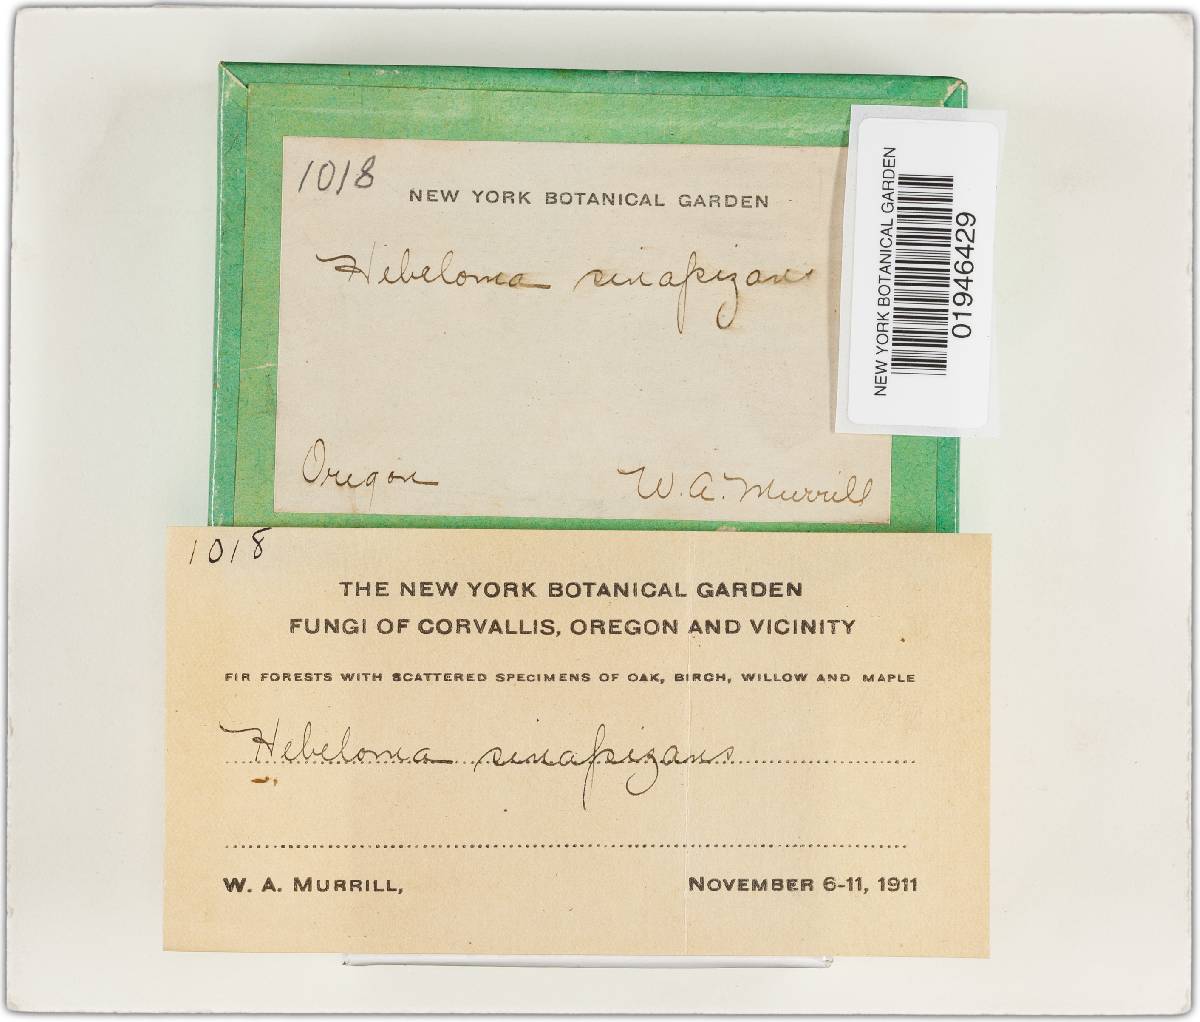 1018
NEW YORK BOTANICAL GARDEN
Hebeloma sinapizans
Oregon
W. A. Murrill
NEW YORK BOTANICAL GARDEN
01946429
1018
THE NEW YORK BOTANICAL GARDEN
FUNGI OF CORVALLIS, OREGON AND VICINITY
FIR FORESTS WITH SCATTERED SPECIMENS OF OAK, BIRCH, WILLOW AND MAPLE
Hebeloma sinapizans
W. A. MURRILL,
NOVEMBER 6-11, 1911